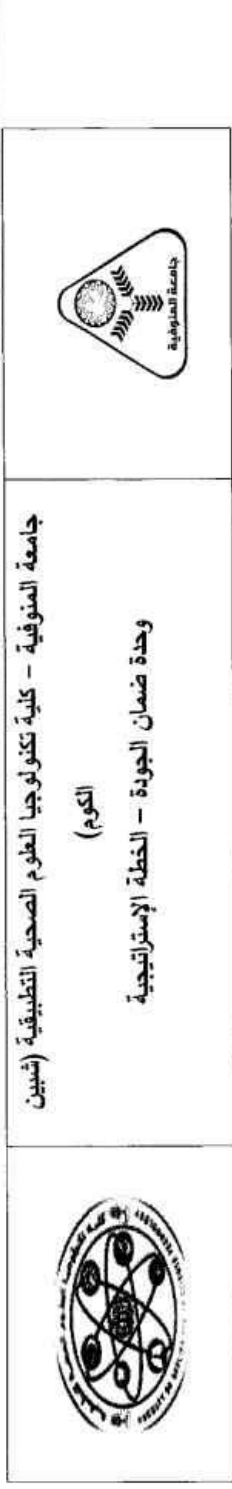 جامعة المنوفية
جامعة المنوفية – كلية تكنولوجيا العلوم الصحية التطبيقية (شبين
الكوم)
وحدة ضمان الجودة – الخطة الإستراتيجية